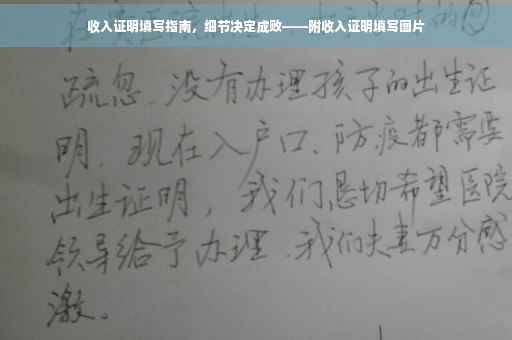 收入证明填写指南，细节决定成败——附收入证明填写图片
疏忽、没有办理孩子的出生证
明、现在入户口、防疫都需要
出生证明，我们恳切希望医院
领导给予办理、我们夫妻万分感
激。